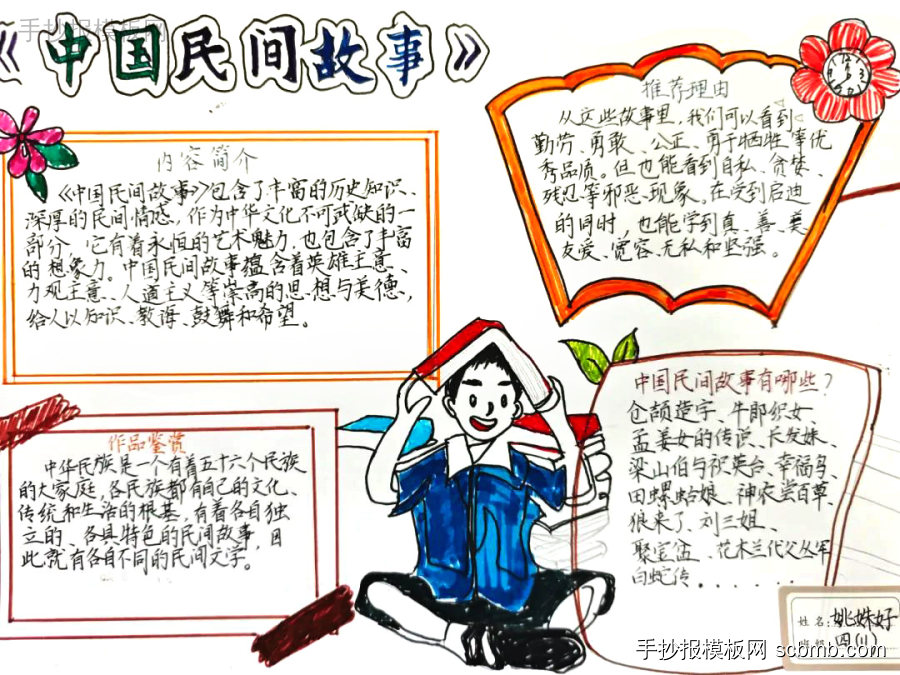 手抄报模板网
《中国民间故事》
内容简介
《中国民间故事》包含了丰富的历史知识、
深厚的民间情感,作为中华文化不可或缺的一
部分,它有着永恒的艺术魅力,也包含了丰富
的想象力。中国民间故事蕴含着英雄主意、
力观主意、人道主义等崇高的思想与美德,
给人以知识、教诲、鼓舞和希望。
推荐理由
从这些故事里,我们可以看到
勤劳、勇敢、公正、勇于牺牲等优
秀品质。但也能看到自私、贪婪、
残忍等邪恶现象。在受到启迪
的同时,也能学到真、善、美
友爱、宽容、无私和坚强。
作品鉴赏
中华民族是一个有着五十六个民族
的大家庭,各民族都有自己的文化、
传统和生活的根基,有着各自独
立的、各具特色的民间故事,因
此就有各自不同的民间文学。
中国民间故事有哪些?
仓颉造字、牛郎织女、
孟姜女的传说、长发妹、
梁山伯与祝英台、幸福鸟、
田螺姑娘、神农尝百草、
狼来了、刘三姐、
聚宝盆、花木兰代父丛军
白蛇传.......
姓名:姚姝好
班级:四(11)
手抄报模板网 scbmb.com